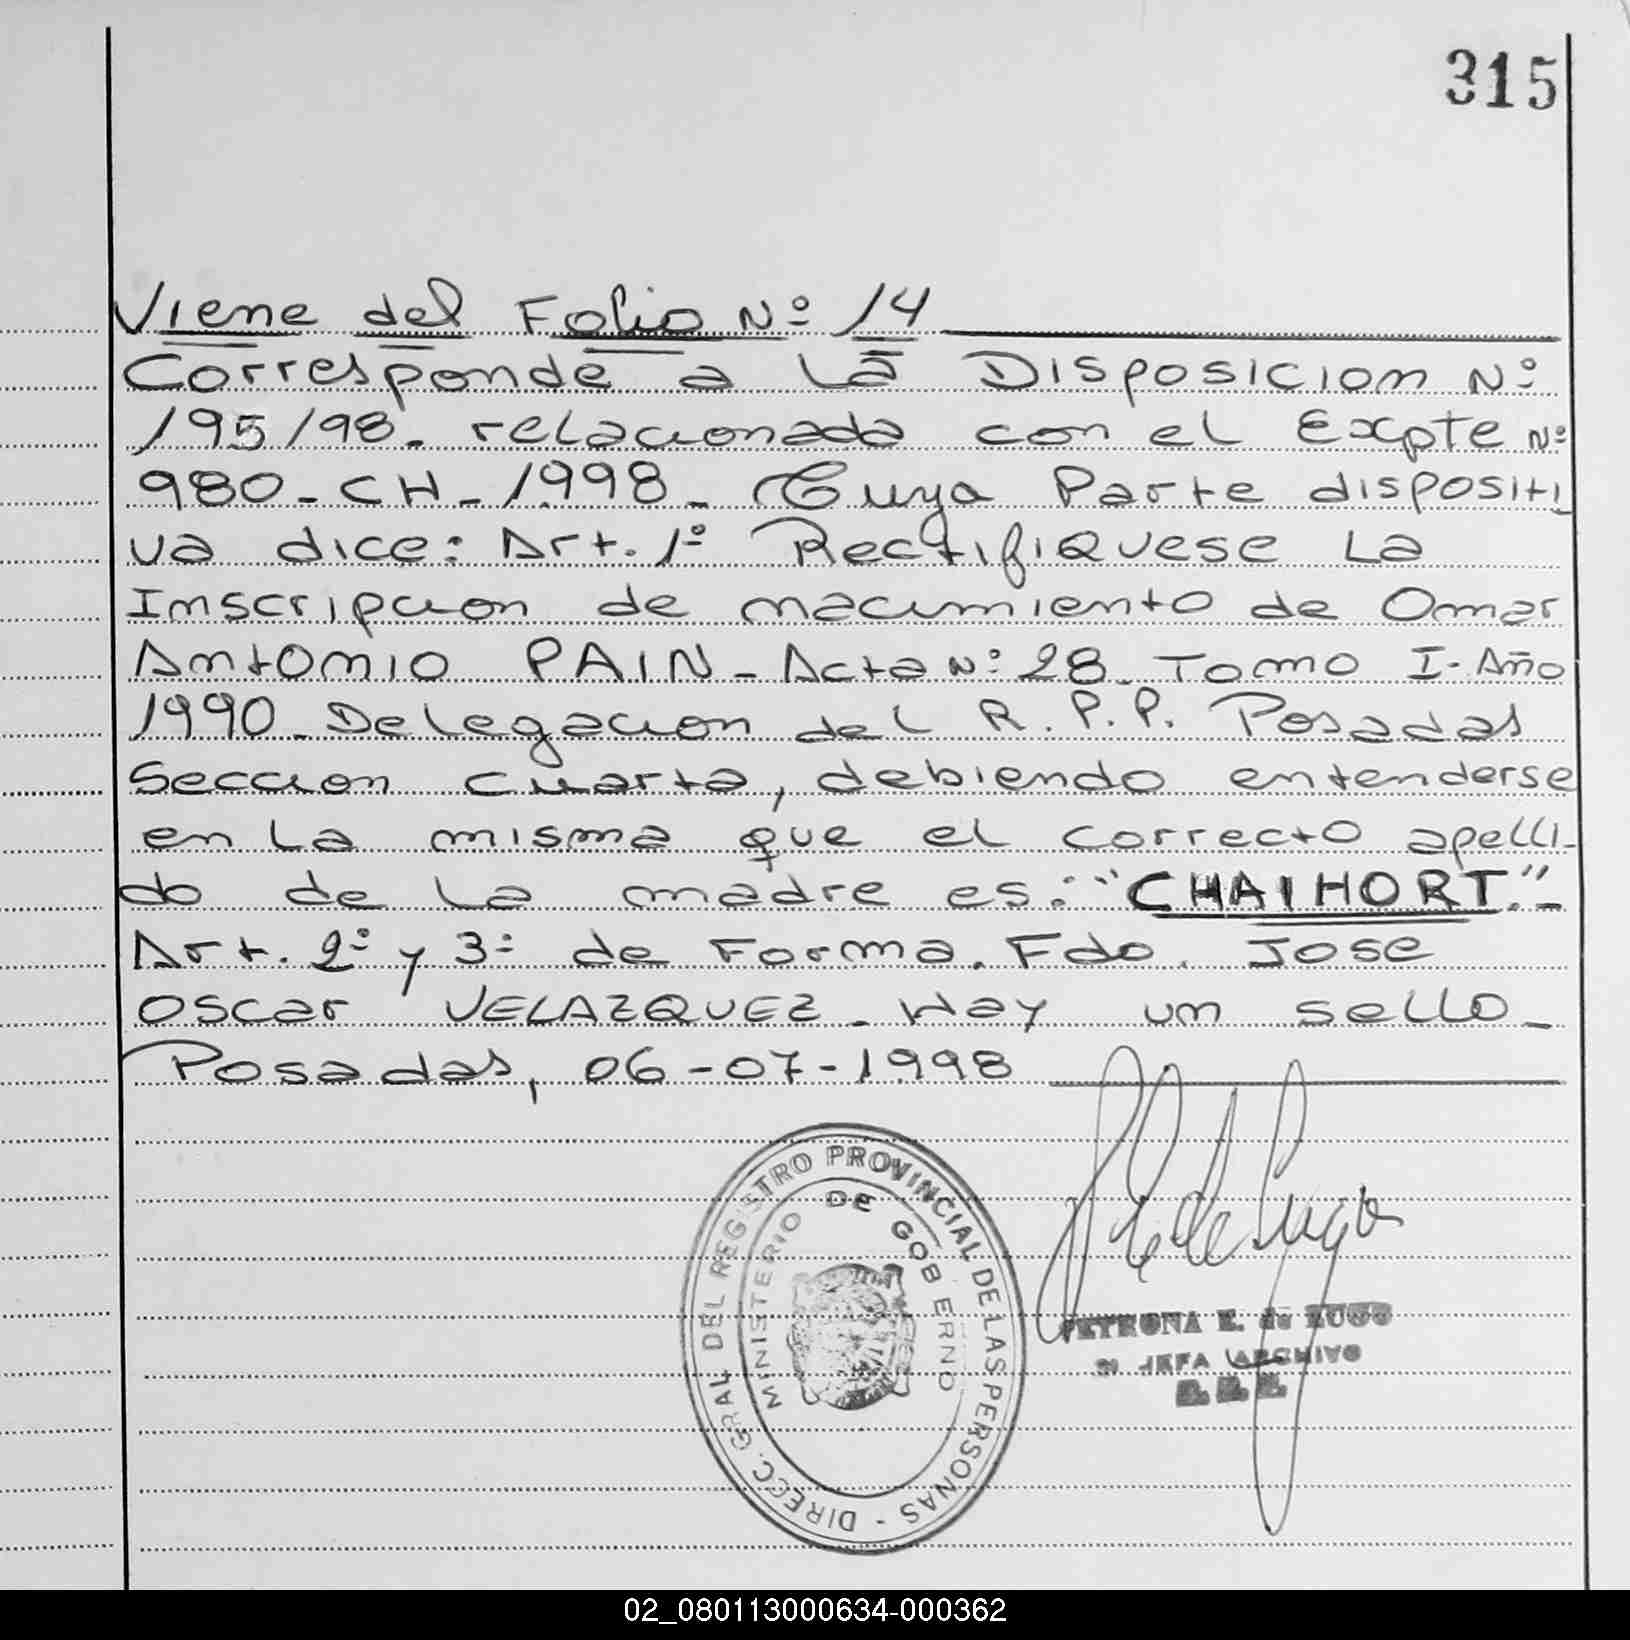 315
Viene del Folio Nº 14
Corresponde a La Disposicion Nº
195/98. relacionada con el Expte Nº
980-CH-1998- Cuya Parte dispositi
va dice: Art. 1º Rectifiquese La
Inscripcion de nacimiento de Omar
Antonio PAIN- Acta Nº 28- Tomo I- Año
1990- Delegacion del R.P.P. Posadas
Seccion Cuarta, debiendo entenderse
en La misma que el correcto apelli-
do de La madre es: "CHAIHORT."-
Art. 2º y 3º de Forma. Fdo. Jose
Oscar VELAZQUEZ- Hay un sello-
Posadas, 06-07-1998
DIRECC. GRAL DEL REGISTRO PROVINCIAL DE LAS PERSONAS -
MINISTERIO DE GOBIERNO
PETRONA E. de LUGO
JEFA ARCHIVO
02_080113000634-000362